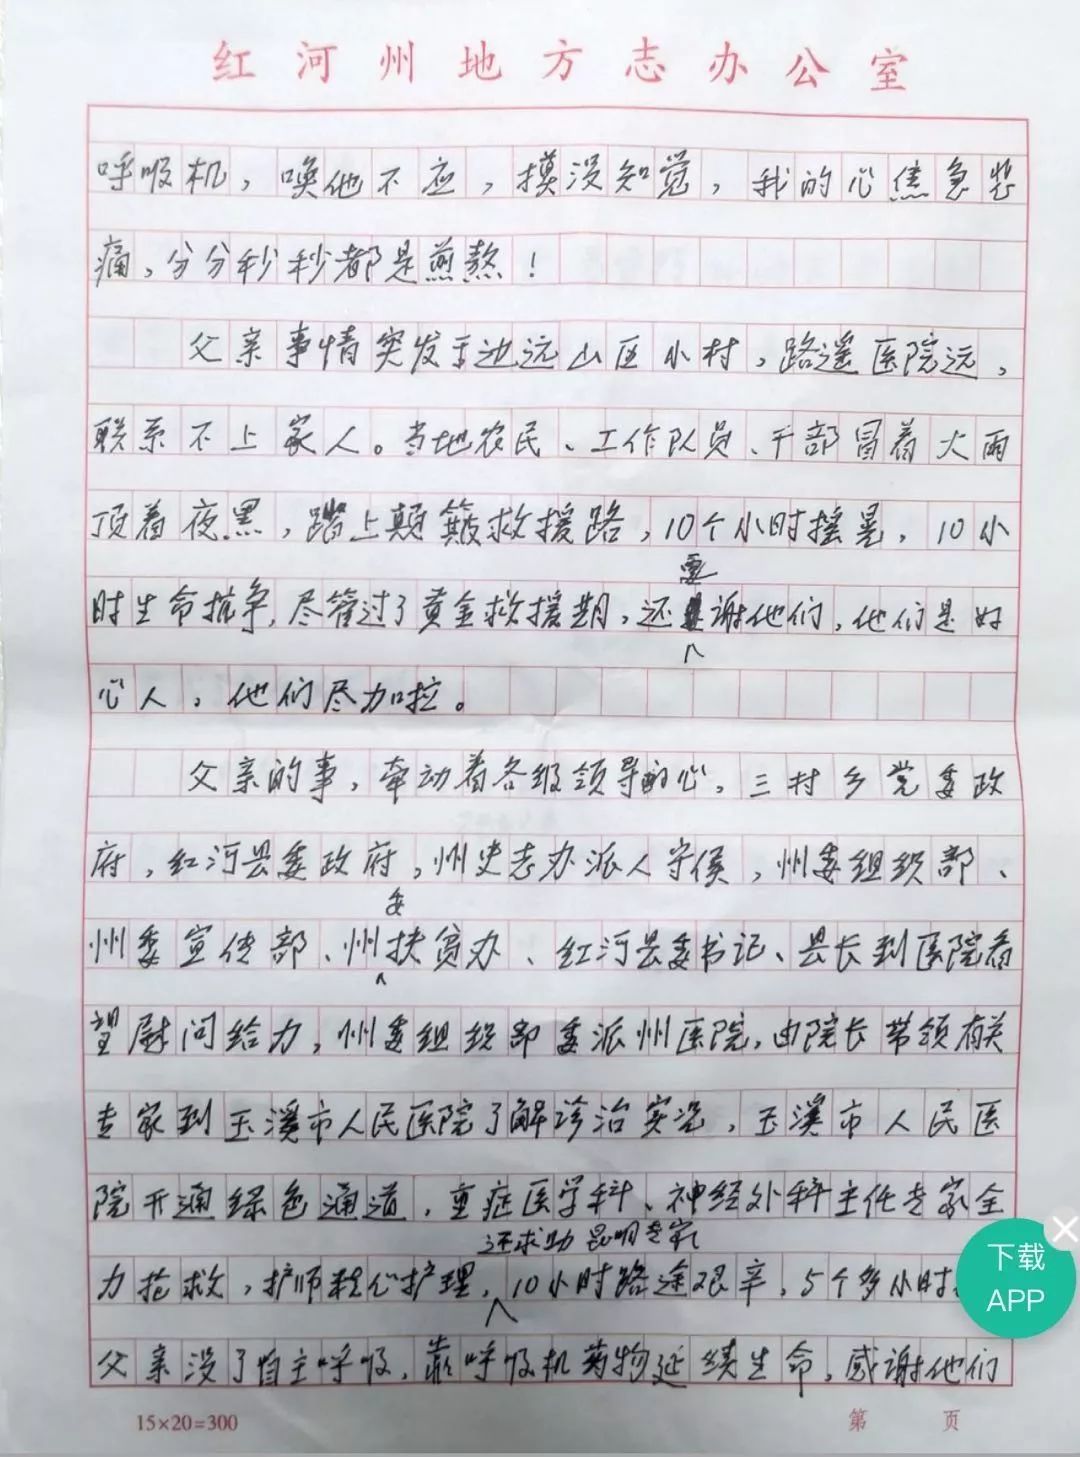 红河州地方志办公室
呼吸机，唤他不应，摸没知觉，我的心焦急悲
痛，分分秒秒都是煎熬！
父亲事情突发于边远山区小村，路遥医院远，
联系不上家人。当地农民、工作队员、干部冒着大雨
顶着夜黑，踏上颠簸救援路，10个小时摇晃，10小
要
时生命抗争，尽管过了黄金救援期，还谢他们，他们是好
心人，他们尽力啦。
父亲的事，牵动着各级领导的心。三村乡党委政
府，红河县委政府，州史志办派人守侯，州委组织部、
委
州委宣传部、州扶贫办、红河县委书记、县长到医院看
望慰问给力，州委组织部委派州医院，由院长带领有关
专家到玉溪市人民医院了解诊治实况，玉溪市人民医
院开通绿色通道，重症医学科、神经外科主任专家全
还求助昆明专家
力抢救，护师精心护理，10小时路途艰辛，5个多小时
父亲没了自主呼吸，靠呼吸机药物延续生命，感谢他们
15×20=300
第 页
下载
APP